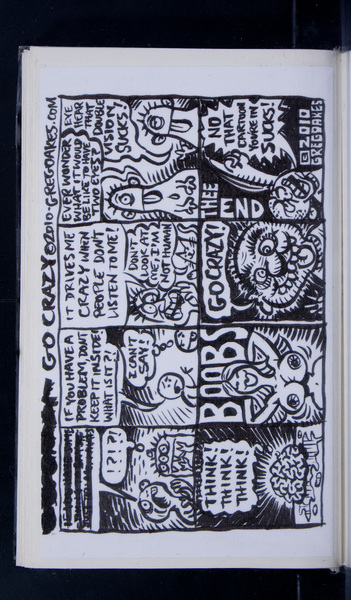 GO CRAZY ©2010-GREGOAKES.COM
?!?
TOO
MANY
IF YOU HAVE A
PROBLEM, DON'T
KEEP IT INSIDE!
WHAT IS IT?!
I CAN'T
SAY!
IT DRIVES ME
CRAZY WHEN
PEOPLE DON'T
LISTEN TO ME!
DON'T
LOOK AT
ME, I'M
NOT HUMAN
EVER WONDER
WHAT IT WOULD
BE LIKE TO HAVE
TWO EYES?
EYE
HEAR
THAT
DOUBLE
VISION
SUCKS!
THINK!
THINK!
THINK!
BOOBS
GO CRAZY!
NO
THAT
CARTOON
YOU'RE IN
SUCKS!
THE
END
©2010
GREGOAKES